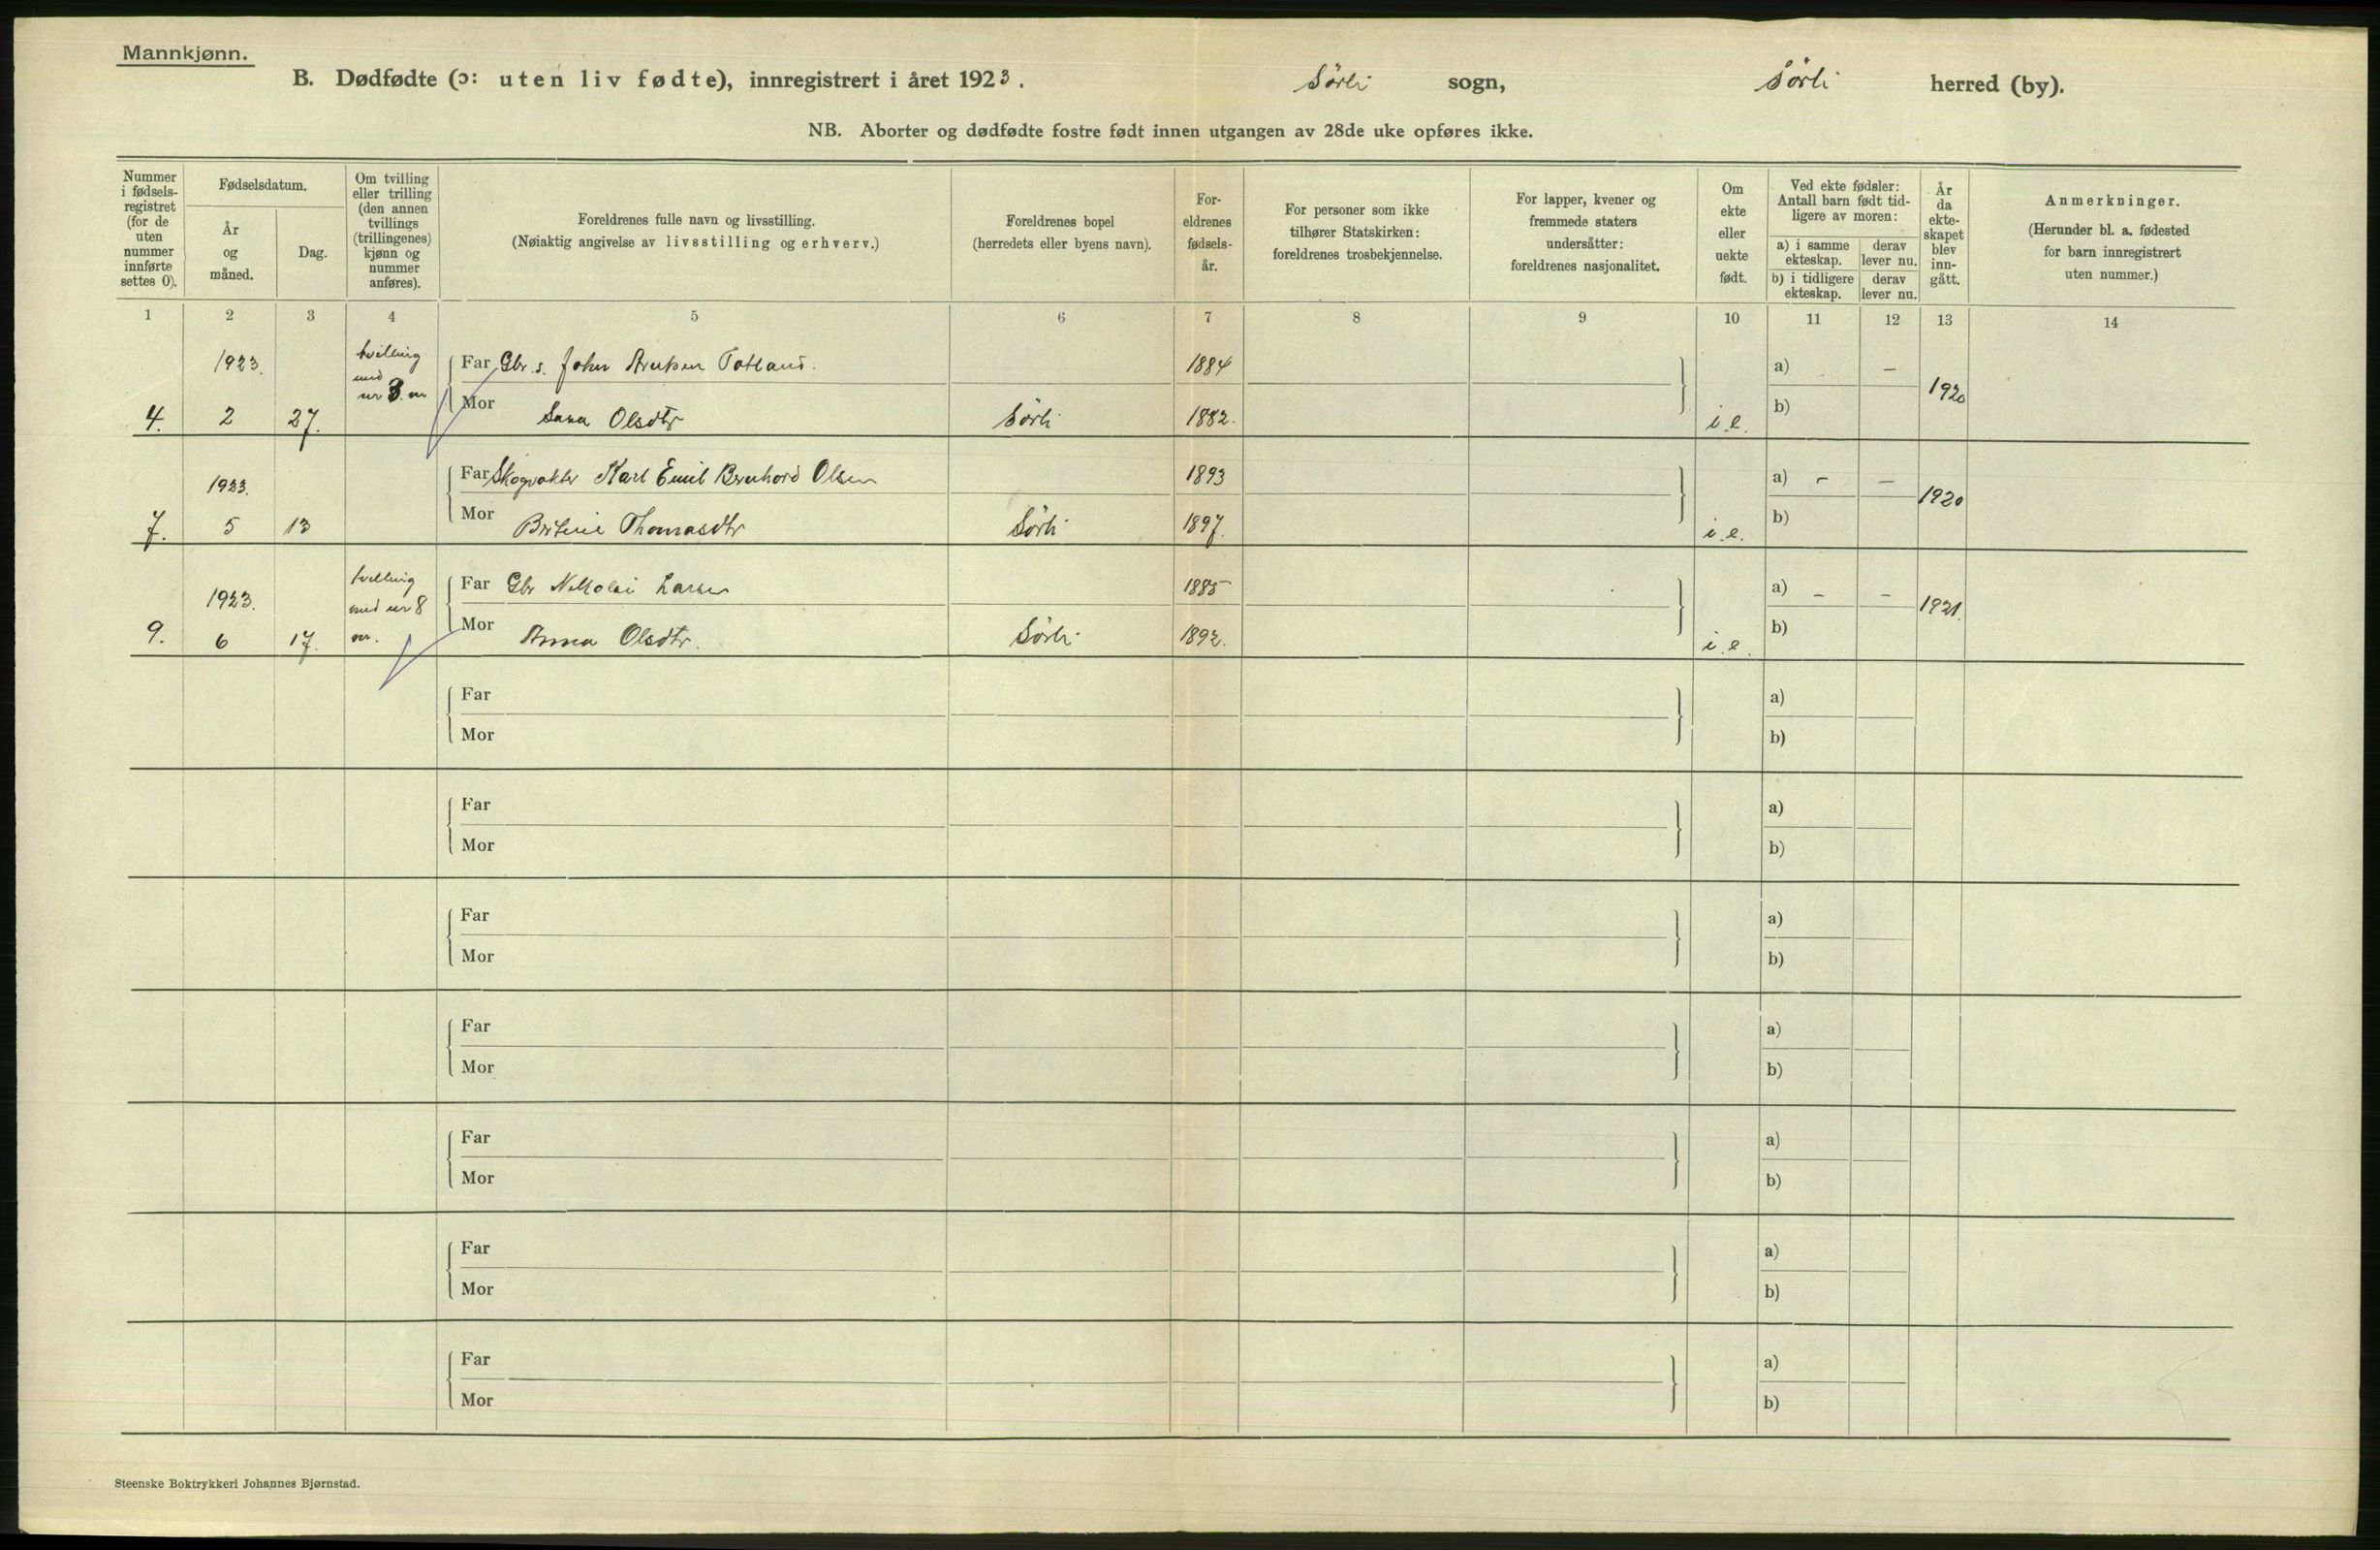 Mannkjønn.
B. Dødfødte (ɔ: uten liv fødte), innregistrert i året 1923. Sörli sogn, Sörli herred (by).
NB. Aborter og dødfødte fostre født innen utgangen av 28de uke opføres ikke.
Nummer i fødsels- registret (for de uten nummer innførte settes 0).
Fødselsdatum.
År og måned.
Dag.
Om tvilling eller trilling (den annen tvillings (trillingenes) kjønn og nummer anføres).
Foreldrenes fulle navn og livsstilling.
(Nøiaktig angivelse av livsstilling og erhverv.)
Foreldrenes bopel
(herredets eller byens navn).
For- eldrenes fødsels- år.
For personer som ikke tilhører Statskirken: foreldrenes trosbekjennelse.
For lapper, kvener og fremmede staters undersåtter: foreldrenes nasjonalitet.
Om ekte eller uekte født.
Ved ekte fødsler: Antall barn født tid- ligere av moren:
a) i samme ekteskap.
derav lever nu.
b) i tidligere ekteskap.
derav lever nu.
År da ekte- skapet blev inn- gått.
Anmerkninger.
(Herunder bl. a. fødested for barn innregistrert uten nummer.)
1 2 3 4 5 6 7 8 9 10 11 12 13 14
1923. tvilling med nr 3. m Far Gbr. s. John 1884 a) – 1920
4. 2 27. Mor Sara Olsdtr Sörli 1882. i.e. b)
1923. Far Skogvokter Karl Emil Bernhard Olsen 1893 a) – – 1920
7. 5 13 Mor Thomasdtr Sörli 1897. i.e. b)
1923. tvilling med nr 8 m. Far Gbr Nikolai Larsen 1885 a) – – 1921.
9. 6 17. Mor Anna Olsdtr. Sörli 1892. i.e. b)
Far a)
Mor b)
Far a)
Mor b)
Far a)
Mor b)
Far a)
Mor b)
Far a)
Mor b)
Far a)
Mor b)
Far a)
Mor b)
Steenske Boktrykkeri Johannes Bjørnstad.